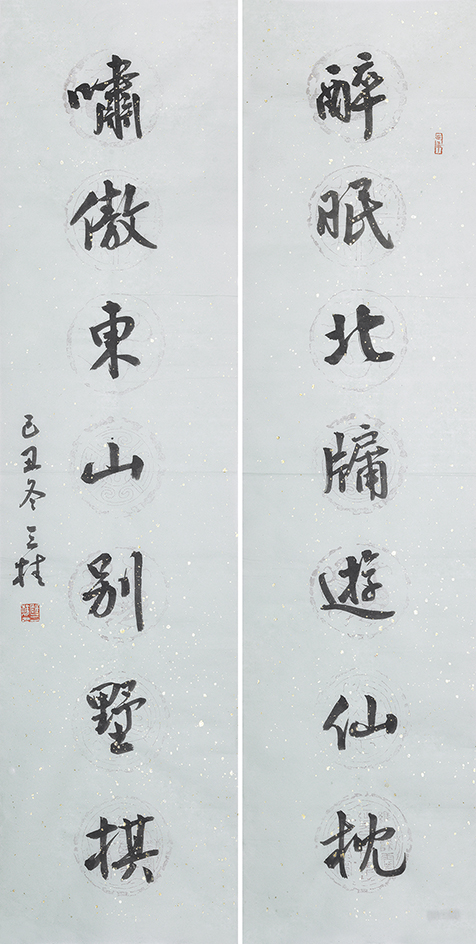 醉眠北牖遊仙枕
嘯傲東山別墅棋
己丑冬三桂